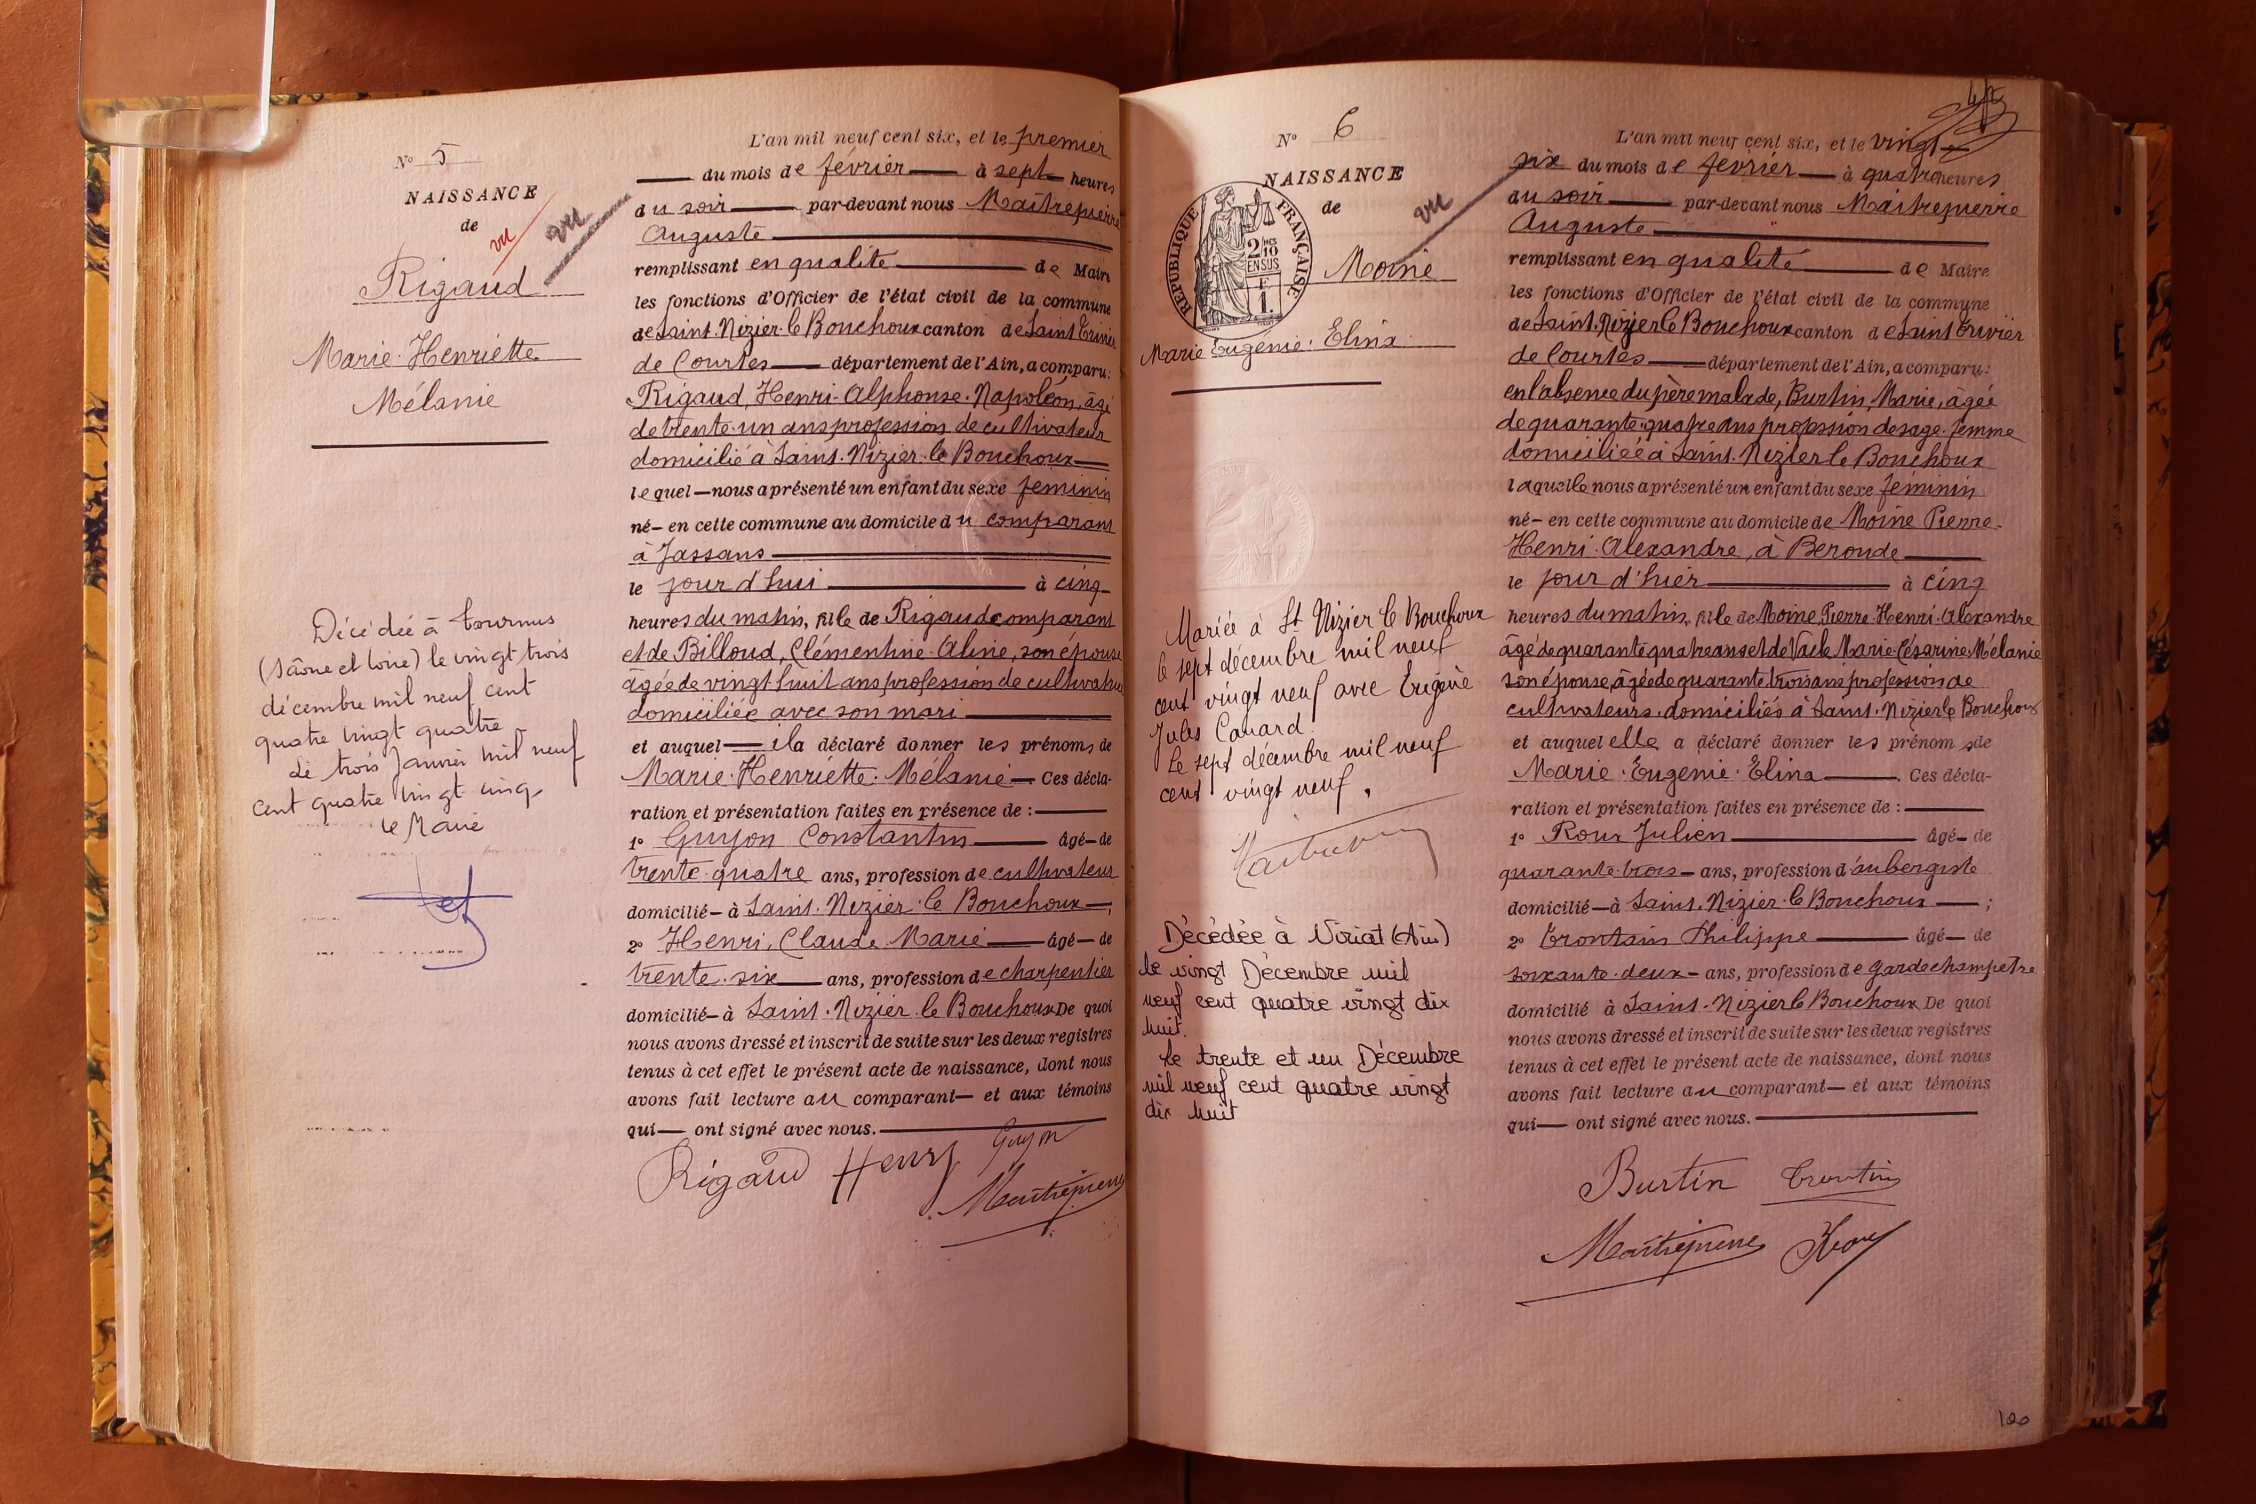 N° 5
NAISSANCE
de
vu
vu
Rigaud
Marie-Henriette
Mélanie
Décédée à Tournus
(Saône et Loire) le vingt trois
décembre mil neuf cent
quatre vingt quatre
Le trois Janvier mil neuf
cent quatre vingt cinq
Le Maire
L'an mil neuf cent six, et le premier
du mois de février à sept heures
du soir par-devant nous Maitrepierre
Auguste
remplissant en qualité de Maire
les fonctions d'Officier de l'état civil de la commune
de Saint-Nizier-le Bouchoux canton de Saint Trivier
de Courtes département de l'Ain, a comparu:
Rigaud, Henri-Alphonse-Napoléon, âgé
de trente-un ans profession de cultivateur
domicilié à Saint-Nizier-le Bouchoux
lequel nous a présenté un enfant du sexe feminin
né en cette commune au domicile du comparant
à Jassans
le jour d'hui à cinq
heures du matin, fille de Rigaud comparant
et de Billoud, Clémentine-Aline, son épouse
âgée de vingt huit ans profession de cultivateur
domiciliée avec son mari
et auquel il a déclaré donner les prénoms de
Marie-Henriette-Mélanie. Ces décla-
ration et présentation faites en présence de :
1° Guyon Constantin âgé de
trente-quatre ans, profession de cultivateur
domicilié à Saint-Nizier-le Bouchoux ;
2° Henri, Claude-Marie âgé de
trente-six ans, profession de charpentier
domicilié à Saint-Nizier-le Bouchoux De quoi
nous avons dressé et inscrit de suite sur les deux registres
tenus à cet effet le présent acte de naissance, dont nous
avons fait lecture au comparant et aux témoins
qui ont signé avec nous.
Rigaud Henry Guyon
Maitrepierre
N° 6
NAISSANCE
de
vu
RÉPUBLIQUE FRANÇAISE
2/10 EN SUS
1 F.
Moine
Marie Eugénie-Elina
Mariée à St Nizier le Bouchoux
le sept décembre mil neuf
cent vingt neuf avec Eugène
Jules Canard.
Le sept décembre mil neuf
cent vingt neuf.
Maitrepierre
Décédée à Viriat (Ain)
le vingt Décembre mil
neuf cent quatre vingt dix
huit.
Le trente et un Décembre
mil neuf cent quatre vingt
dix huit
L'an mil neuf cent six, et le vingt
six du mois de février à quatre heures
du soir par-devant nous Maitrepierre
Auguste
remplissant en qualité de Maire
les fonctions d'Officier de l'état civil de la commune
de Saint-Nizier le Bouchoux canton de Saint Trivier
de Courtes département de l'Ain, a comparu:
en l'absence du père malade, Burtin, Marie, âgée
de quarante-quatre ans profession de sage-femme
domiciliée à Saint-Nizier le Bouchoux
laquelle nous a présenté un enfant du sexe feminin
né en cette commune au domicile de Moine Pierre-
Henri-Alexandre, à Beronde
le jour d'hier à cinq
heures du matin, fille de Moine Pierre-Henri-Alexandre
âgé de quarante quatre ans et de Marie-Césarine-Mélanie
son épouse, âgée de quarante trois ans profession de
cultivateurs domiciliés à Saint-Nizier le Bouchoux
et auquel elle a déclaré donner les prénoms de
Marie-Eugenie-Elina. Ces décla-
ration et présentation faites en présence de :
1° Roux Julien âgé de
quarante-trois ans, profession d'aubergiste
domicilié à Saint-Nizier-le Bouchoux ;
2° Trontin Philippe âgé de
soixante-deux ans, profession de garde champetre
domicilié à Saint-Nizier le Bouchoux De quoi
nous avons dressé et inscrit de suite sur les deux registres
tenus à cet effet le présent acte de naissance, dont nous
avons fait lecture au comparant et aux témoins
qui ont signé avec nous.
Burtin Trontin
Maitrepierre Roux
120